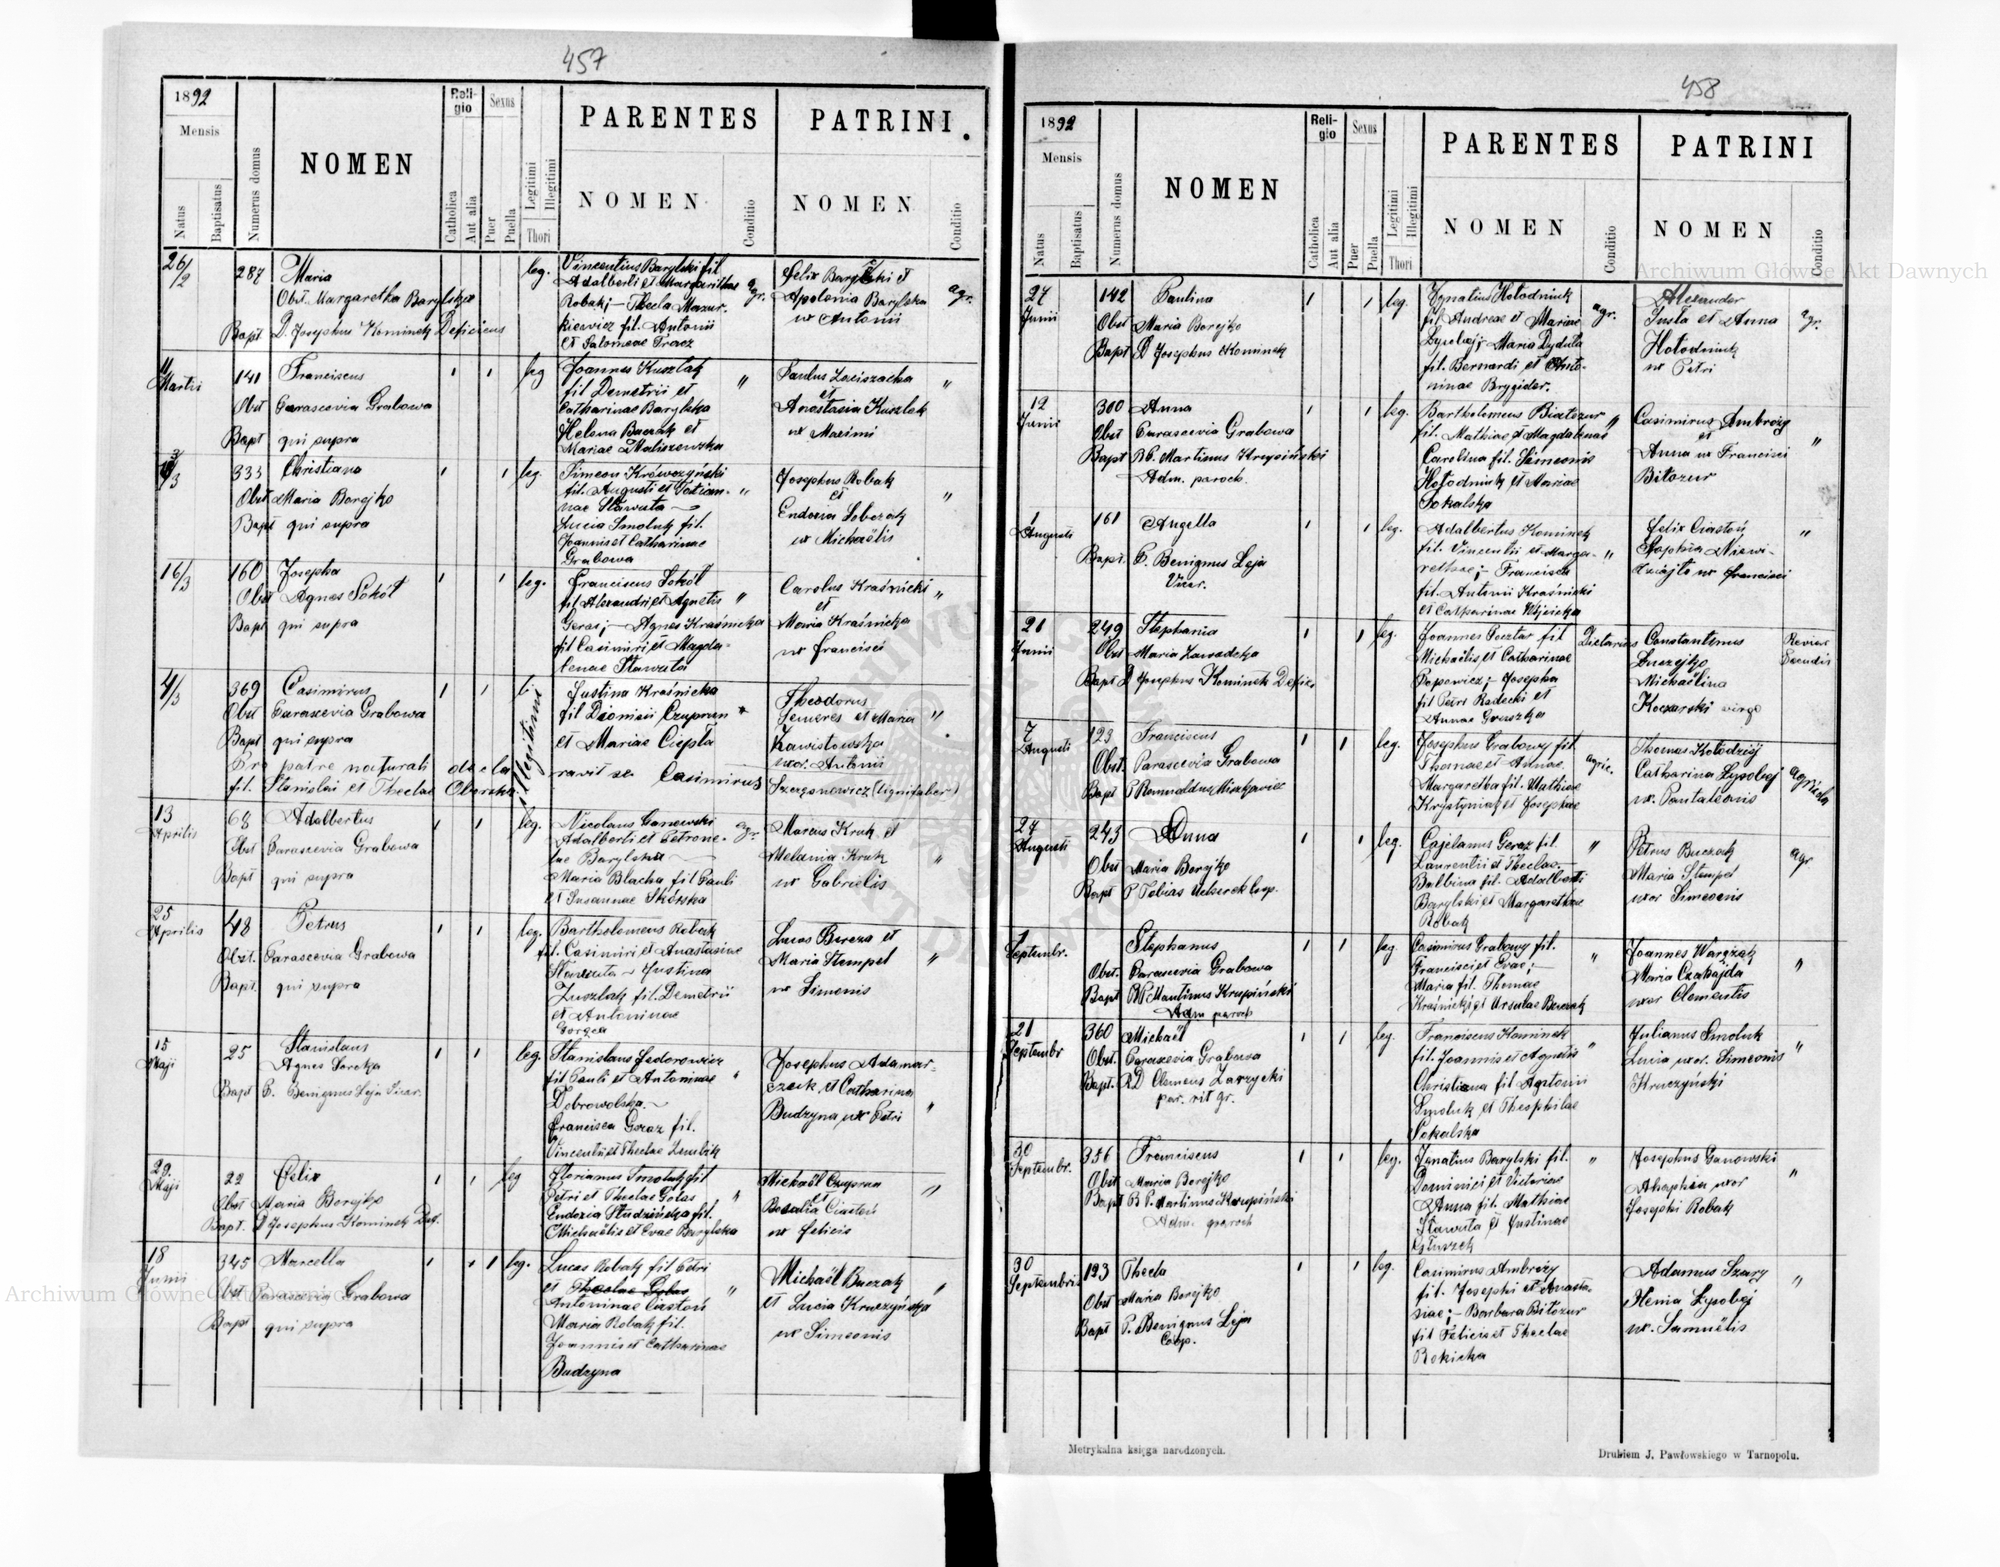 457
1892
Mensis
Natus
Baptisatus
Numerus domus
NOMEN
Religio
Catholica
Aut alia
Sexus
Puer
Puella
Legitimi
Illegitimi
Thori
PARENTES
NOMEN
Conditio
PATRINI.
NOMEN
Conditio
26/2 287 Maria leg. Vincentius Barylski fil agr. Felix Barylski et agr.
Obst. Margaretha Barylska Adalberti et Margarithae Apolonia Barylska
Bapt. D. Josephus Kominek Deficiens Robak; Thecla Mazur- ux Antonii
kiewicz fil. Antonii
et Salomeae Tracz
11 Martii 141 Franciscus leg Joannes Kuszlak " Paulus "
Obst Parascevia Grabowa fil Demetrii et et
Bapt qui supra Catharinae Barylska Anastasia Kuszlak
Helena Buczak et ux Maximi
Mariae Maliszewska
333 Christiana leg. Simeon Krówczyński Josephus Robak
Obst Maria Borejko fil. Augusti et " et "
Bapt qui supra nae Stawata Eudoxia Sobczak
Lucia Smoluk fil. ux Michaëlis
Joannis et Catharinae
Grabowa
16/3 160 Josepha leg. Franciscus Sokół Carolus Kraśnicki "
Obst Agnes Sokół fil Alexandri et Agnetis " et
Bapt qui supra Geraz; Agnes Kraśnicka Maria Kraśnicka
fil Casimiri et Magda- ux Francisci
lenae Stawata
4/3 369 Casimirus Illegitimi Justina Kraśnicka Theodorus
Obst Parascevia Grabowa fil Dionisii Czuprun et Maria "
Bapt qui supra et Mariae Ciepła Zawistowska
Pro patre naturali declaravit se Casimirus uxor. Antonii
fil. Stanislai et Theclae (lignifaber)
13 Aprilis 68 Adalbertus leg. Nicolaus Ganowski agr. Marcus Kruk et
Obst Parascevia Grabowa Adalberti et Petrone- Melania Kruk "
Bapt qui supra lae Barylska ux Gabrielis
Maria Blacha fil Pauli
et Susannae Skórska
25 Aprilis 48 Petrus leg. Bartholomeus Robak Lucas Bereza et
Obst. Parascevia Grabowa fil. Casimiri et Anastasiae Maria Stempel "
Bapt. qui supra Stawata Justina ux Simonis
Kuszlak fil. Demetrii
et Antoninae
15 Maji 25 Stanislaus leg. Stanislaus Fedorowicz Josephus Adamar-
Agnes Soroka fil Pauli et Antoninae " czuk et Catharina
Bapt P. Benignus Leja Vicar. Dobrowolska. Budzyna ux Petri "
Francisca Geraz fil.
Vincentii et Theclae
29. Maji 22 Felix leg Florianus Smoluk fil Michaël Czuprun "
Obst Maria Borejko Petri et Theclae Golas " et
Bapt. D Josephus Kominek Def. Eudoxia Studzińska fil. Rosalia Ciastoń
Michaëlis et Evae Barylska ux Felicis
18 Junii 345 Marcella leg. Lucas Robak fil Petri Michaël Buczak "
Obst Parascevia Grabowa et Theclae Golas " et Lucia Kruczyńska
Bapt qui supra Antoninae Ciastoń ux Simeonis
Maria Robak fil.
Joannis et Catharinae
Budzyna
458
1892
Mensis
Natus
Baptisatus
Numerus domus
NOMEN
Religio
Catholica
Aut alia
Sexus
Puer
Puella
Legitimi
Illegitimi
Thori
PARENTES
NOMEN
Conditio
PATRINI
NOMEN
Conditio
27 Junii 142 Paulina leg. Ignatius Hołodniuk agr. Alexander agr.
Obst Maria Borejko fil Andreae et Mariae Justa et Anna
Bapt D Josephus Kominek Łysobej; Maria Dyduła Hołodniuk
fil. Bernardi et Anto- ux Petri
ninae Brygider.
12 Junii 300 Anna leg. Bartholomeus Białozur " Casimirus Ambroży "
Obst Parascevia Grabowa fil. Mathiae et Magdalenae et
Bapt R.P. Martinus Krupiński Carolina fil. Simeonis Anna ux Francisci
Adm. paroch. Hołodniuk et Mariae Bitozur
Sokalska
1 Augusti 161 Angella leg. Adalbertus Kominek Felix Ciastoń "
Bapt. P. Benignus Leja fil. Vincentii et Marga- " Sophia
Vicar. rethae; Francisca ux Francisci
fil. Antonii Kraśnicki
et Catharinae Wójcicka
21 Junii 249 Stephania leg. Joannes fil Dietarius Constantinus
Obst Maria Zawadcka Michaëlis et Catharinae
Bapt D Josephus Kominek Defic. Popowicz; Josepha Michaëlina
fil Petri Radecki et virgo
Annae Gruszka
7 Augusti 123 Franciscus leg. Josephus Grabowy fil. agric. Thomas Kołodziej agricola
Obst. Parascevia Grabowa Thomae et Annae Catharina Łysobej
Bapt P Romualdus Miszkiewicz Margaretha fil. Mathiae ux. Pantaleonis
Krystyniak et Josephae
27 Augusti 243 Anna leg. Cajetanus Geraz fil. " Petrus Buczak agr.
Obst Maria Borejko Laurentii et Theclae Maria Stempel
Bapt P Tobias coop. Balbina fil. Adalberti uxor Simeonis
Barylski et Margarethae
Robak
1 Septembr. Stephanus leg Casimirus Grabowy fil. " Joannes "
Obst. Parascevia Grabowa Francisci et Evae; Maria Czabajda
Bapt R.P. Martinus Krupiński Maria fil. Thomae uxor Clementis
Adm paroch Kraśnicki et Ursulae Buczak
21 Septembr 360 Michaël leg. Franciscus Kominek " Julianus Smoluk "
Obst. Parascevia Grabowa fil. Joannis et Agnetis Lucia uxor. Simeonis
Bapt. RD Clemens Zarzycki Christiana fil Antonii Kruczyński
par. rit gr. Smoluk et Theophilae
Sokalska
30 Septembr. 356 Franciscus leg. Ignatius Barylski fil. " Josephus Ganowski "
Obst Maria Borejko Dominici et Victoriae Ahaphia uxor
Bapt R P. Martinus Krupiński Anna fil. Mathiae Josephi Robak
Adm. paroch Stawata et Justinae
30 Septembris 193 Thecla leg. Casimirus Ambroży Adamus Szary "
Obst Maria Borejko fil. Josephi et Anasta- Xenia Łysobej
Bapt P. Benignus Leja siae; Barbara Bitozur ux. Samuëlis
Coop. fil Felicis et Theclae
Rokicka
Metrykalna księga narodzonych.
Drukiem J. Pawłowskiego w Tarnopolu.
Archiwum Główne Akt Dawnych
Archiwum Główne Akt Dawnych